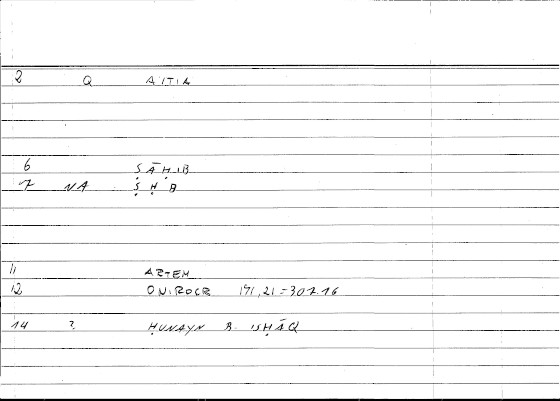 2 Q A'ITIA
6 ṢĀḤIB
7 NA Ṣ Ḥ B
11 ARTEM
12 ONIROCR 171,21=307.16
14 ? ḤUNAYN B. ISḤĀQ